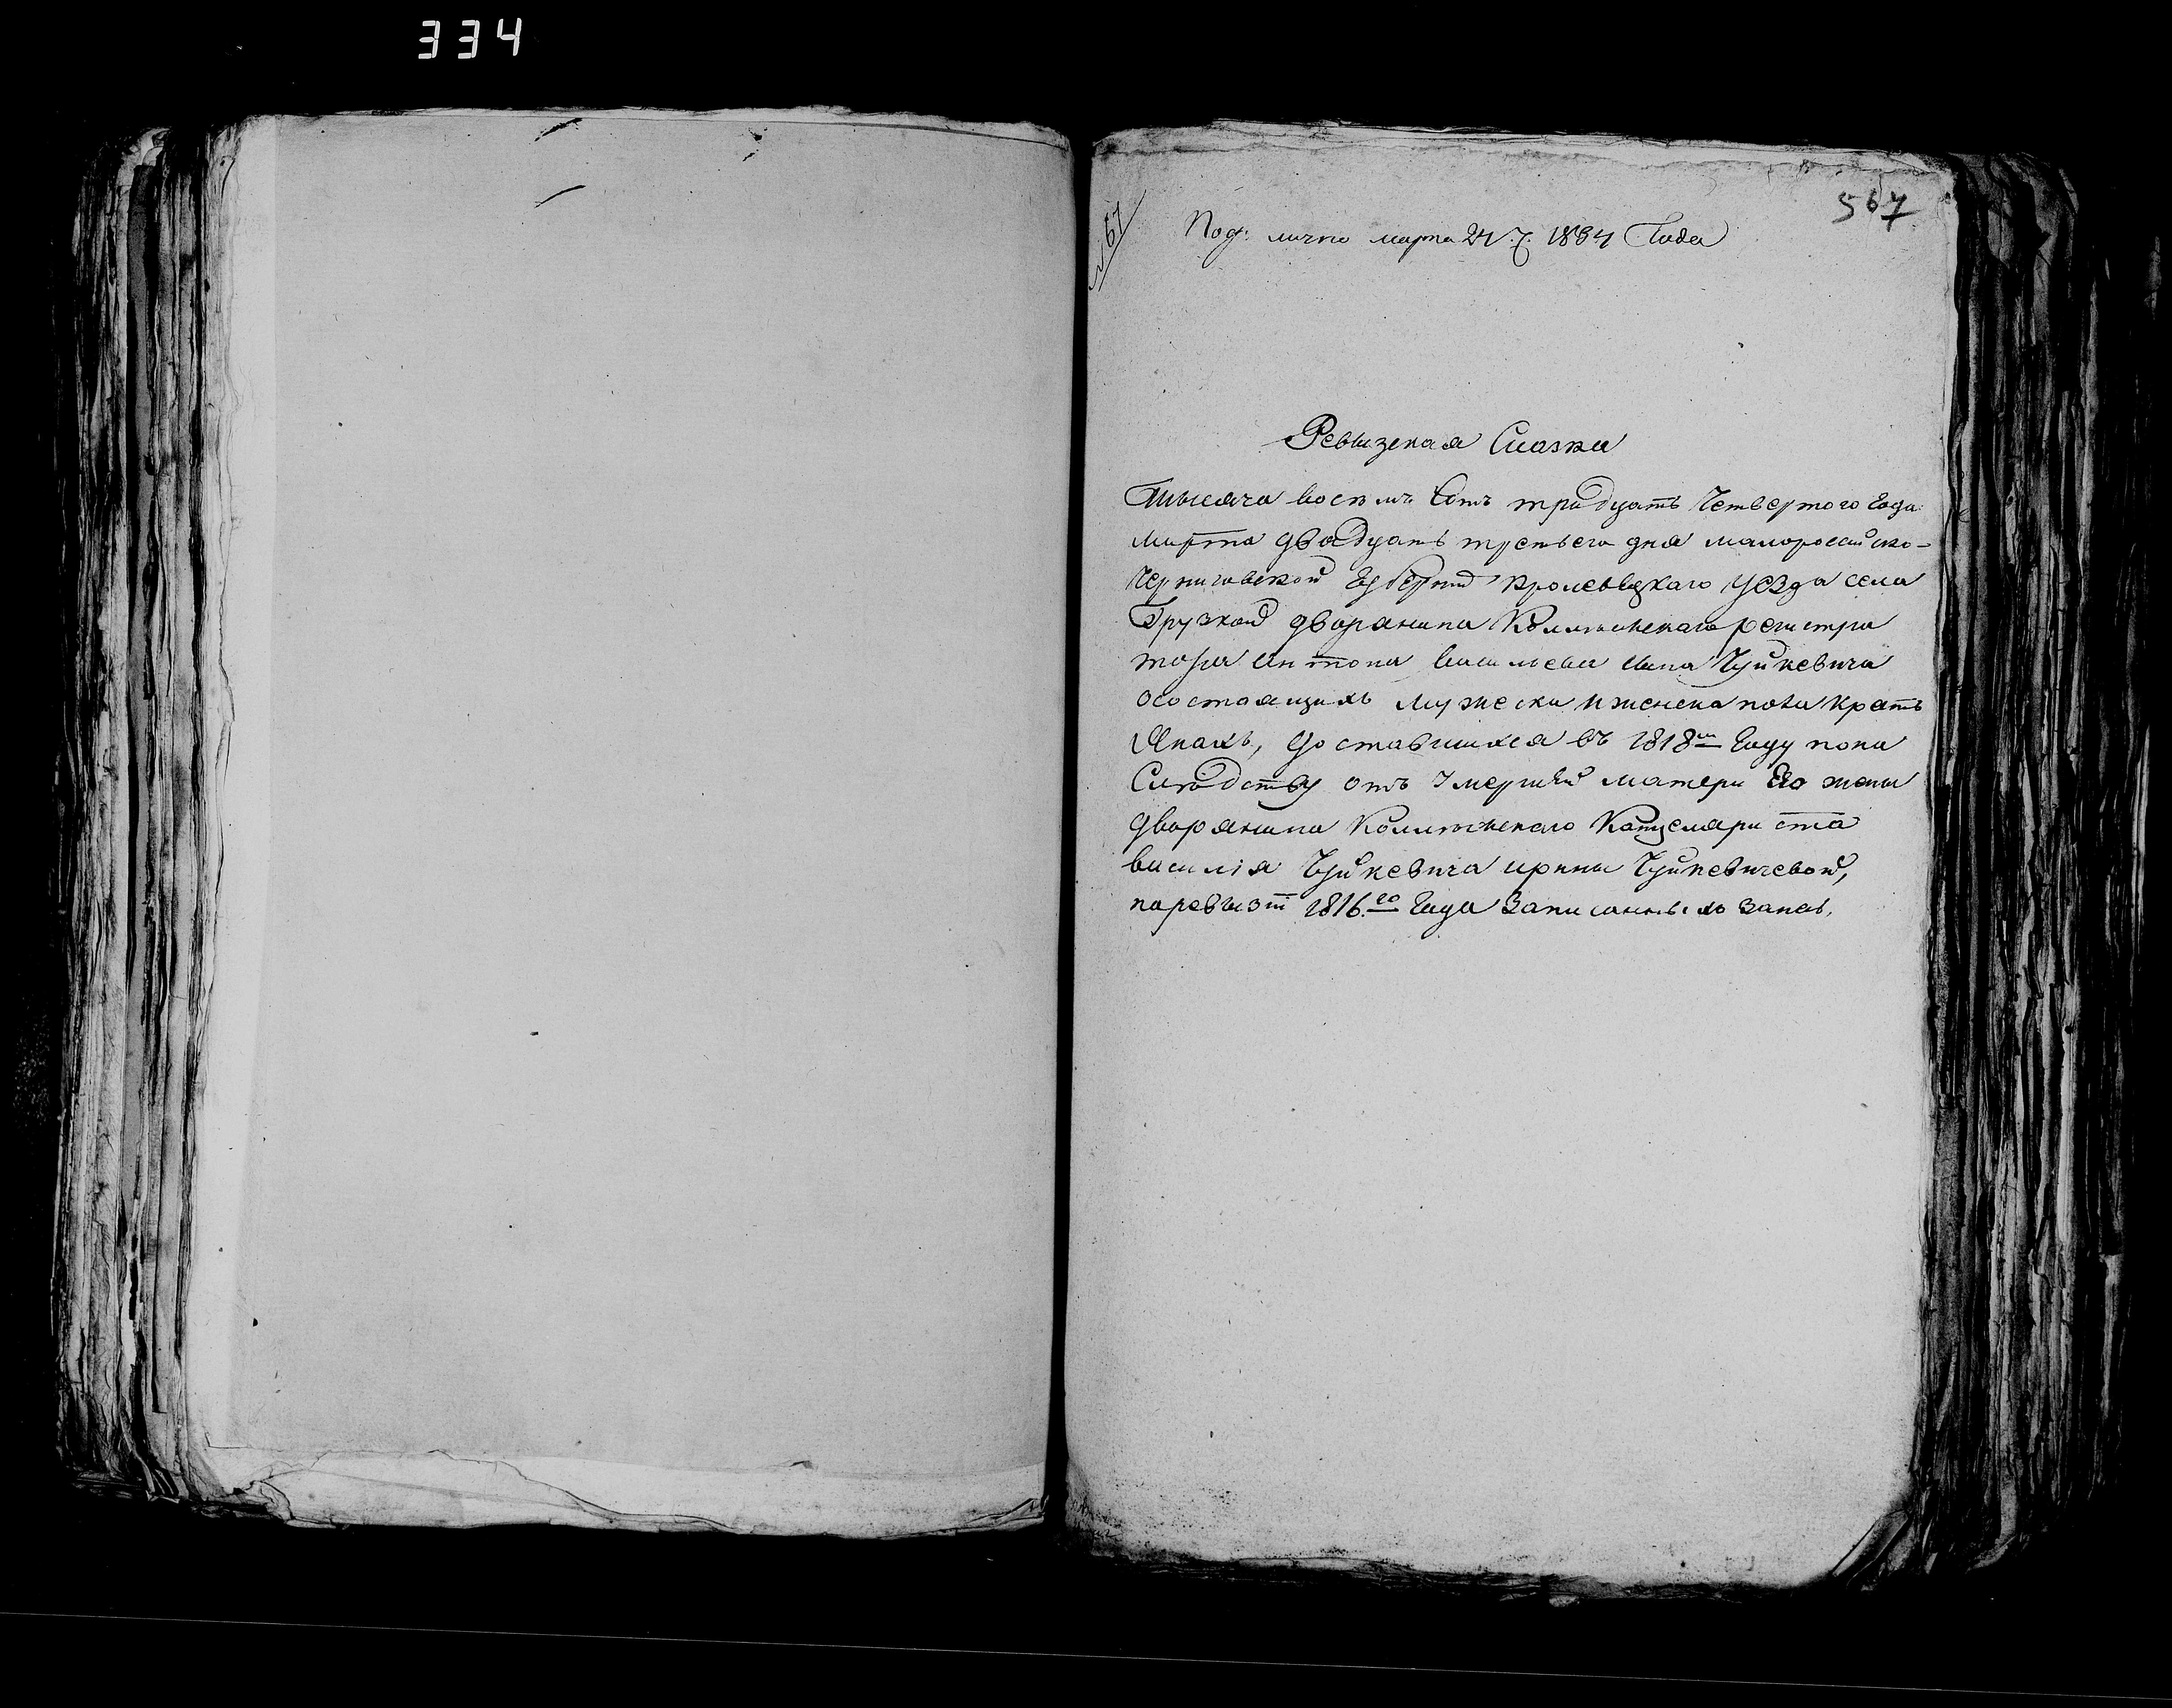 334
567
№ 67
Под: лично марта 24 ч. 1834 Года
Ревизская Сказка
Тысяча восемъ Сотъ тридцать Четвертого Года
марта двадцать третьего дня малороссийско-
Черниговской Губернии Кролевецкаго уезда села
Грузкой дворянина Коллежскаго регистра
тора Антона васильева сина Чуйкевича
осостоящихъ мужеска и женска пола крестъ
янахъ, доставшихся въ 1818м Году пона
Следству отъ умершей матери Его жены
дворянина Коллежскаго Канцеляриста
василия Чуйкевича ирины Чуйкевичевой,
поревизии 1816.го Года Записанныхъ Запов.